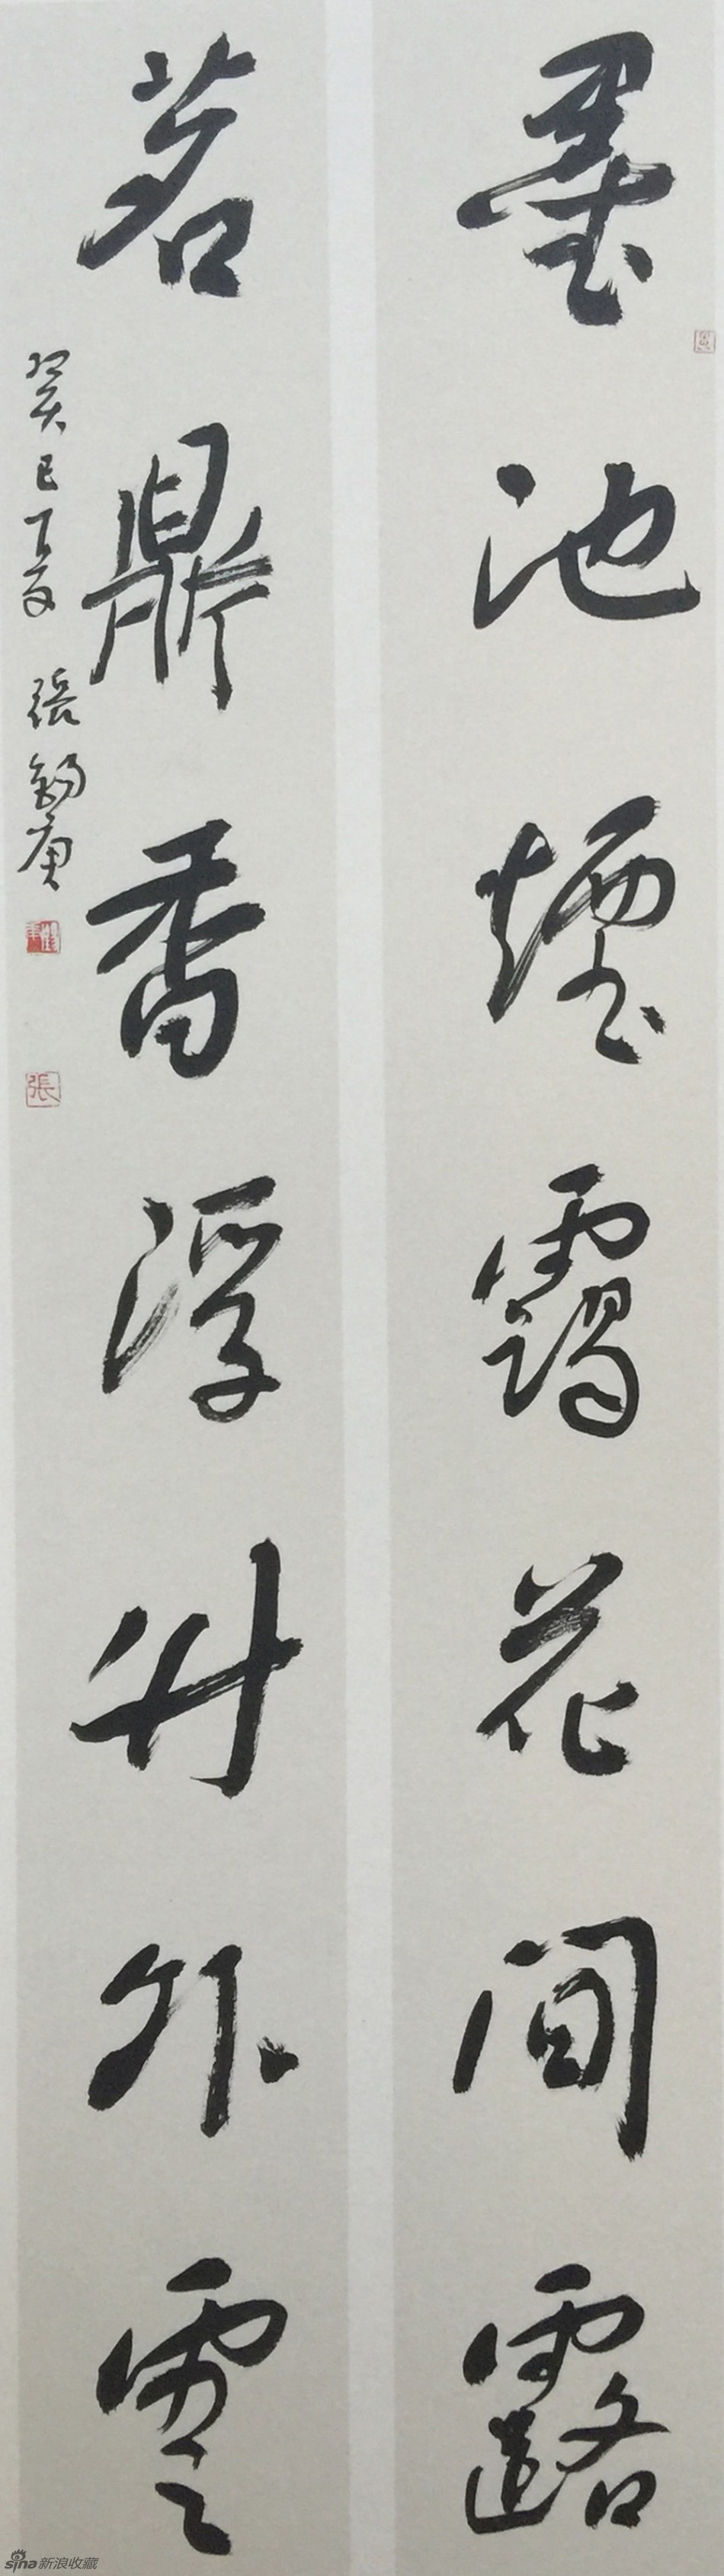 墨池煙靄花間露
茗鼎香浮竹外雲
癸巳夏 張錫庚
張
sina新浪收藏